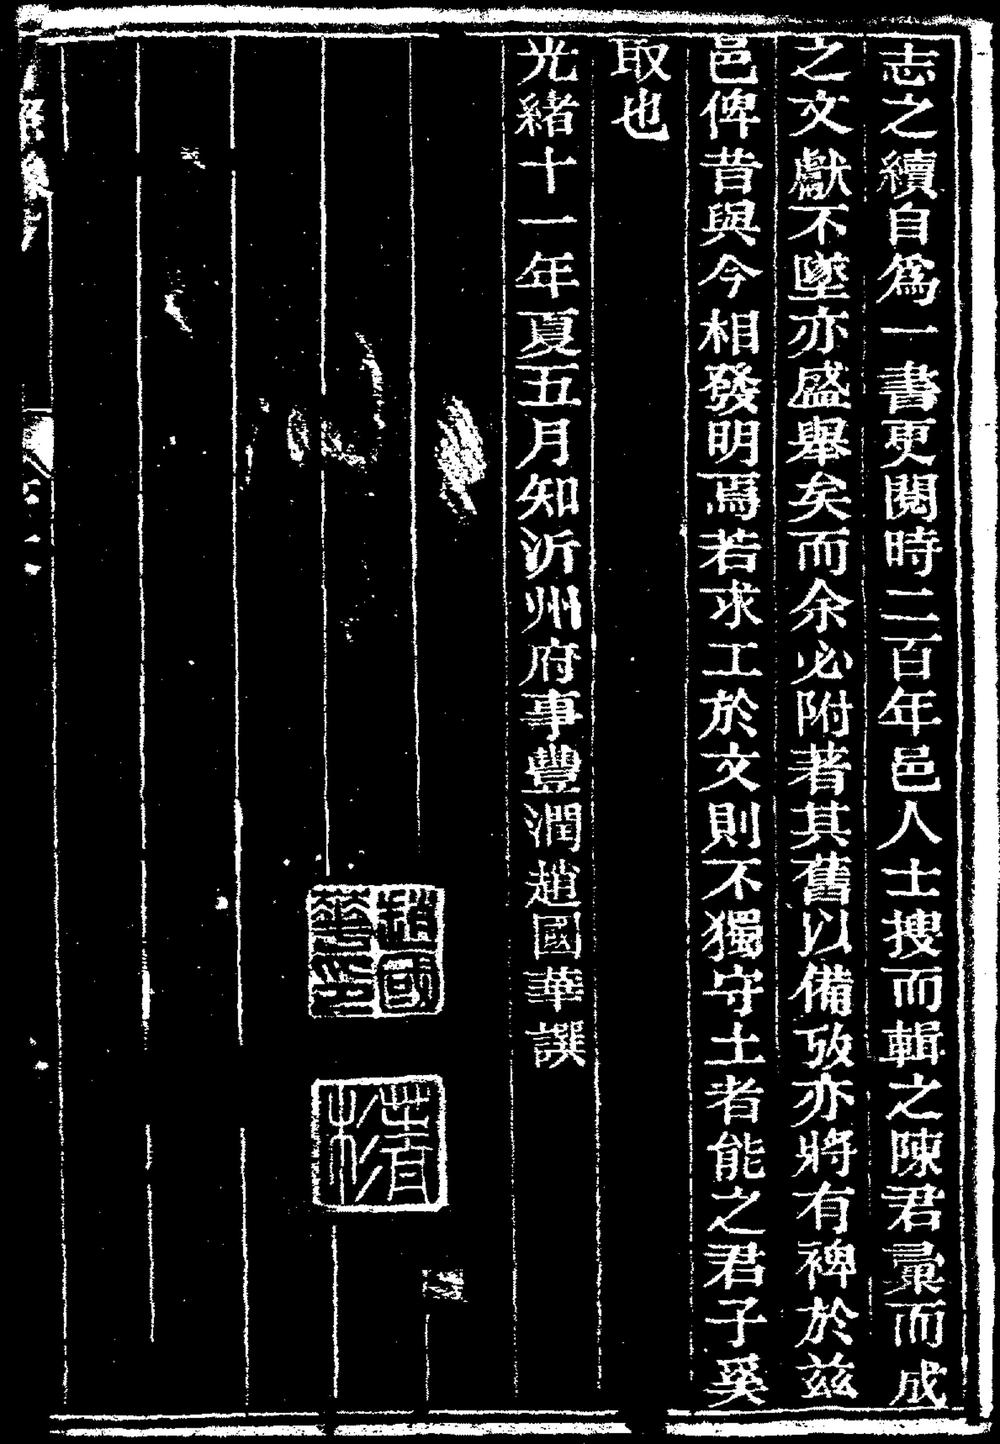 志之續自爲一書更閱時二百年邑人士搜而輯之陳君彚而成
之文獻不墜亦盛舉矣而余必附著其舊以備攷亦將有裨於兹
邑俾昔與今相發明焉若求工於文則不獨守土者能之君子奚
取也
光緒十一年夏五月知沂州府事豐潤趙國華譔
趙國
華印
菁
衫